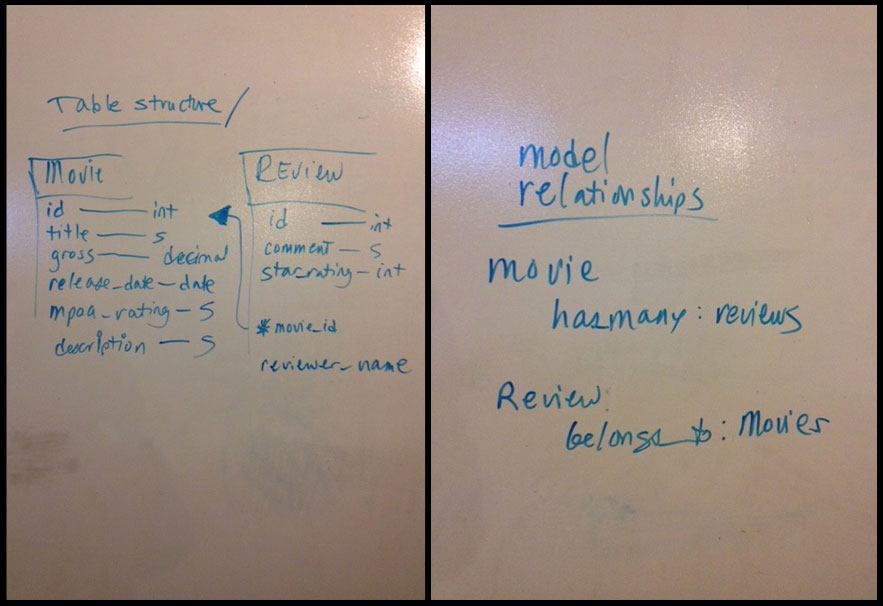 Table structure/
Movie
id — int
title — s
gross — decimal
release_date — date
mpaa_rating — S
description — S
REview
id — int
comment — S
starrating — int
* movie_id
reviewer_name
model
relationships
movie
hasmany : reviews
Review
belongs_to : Movies